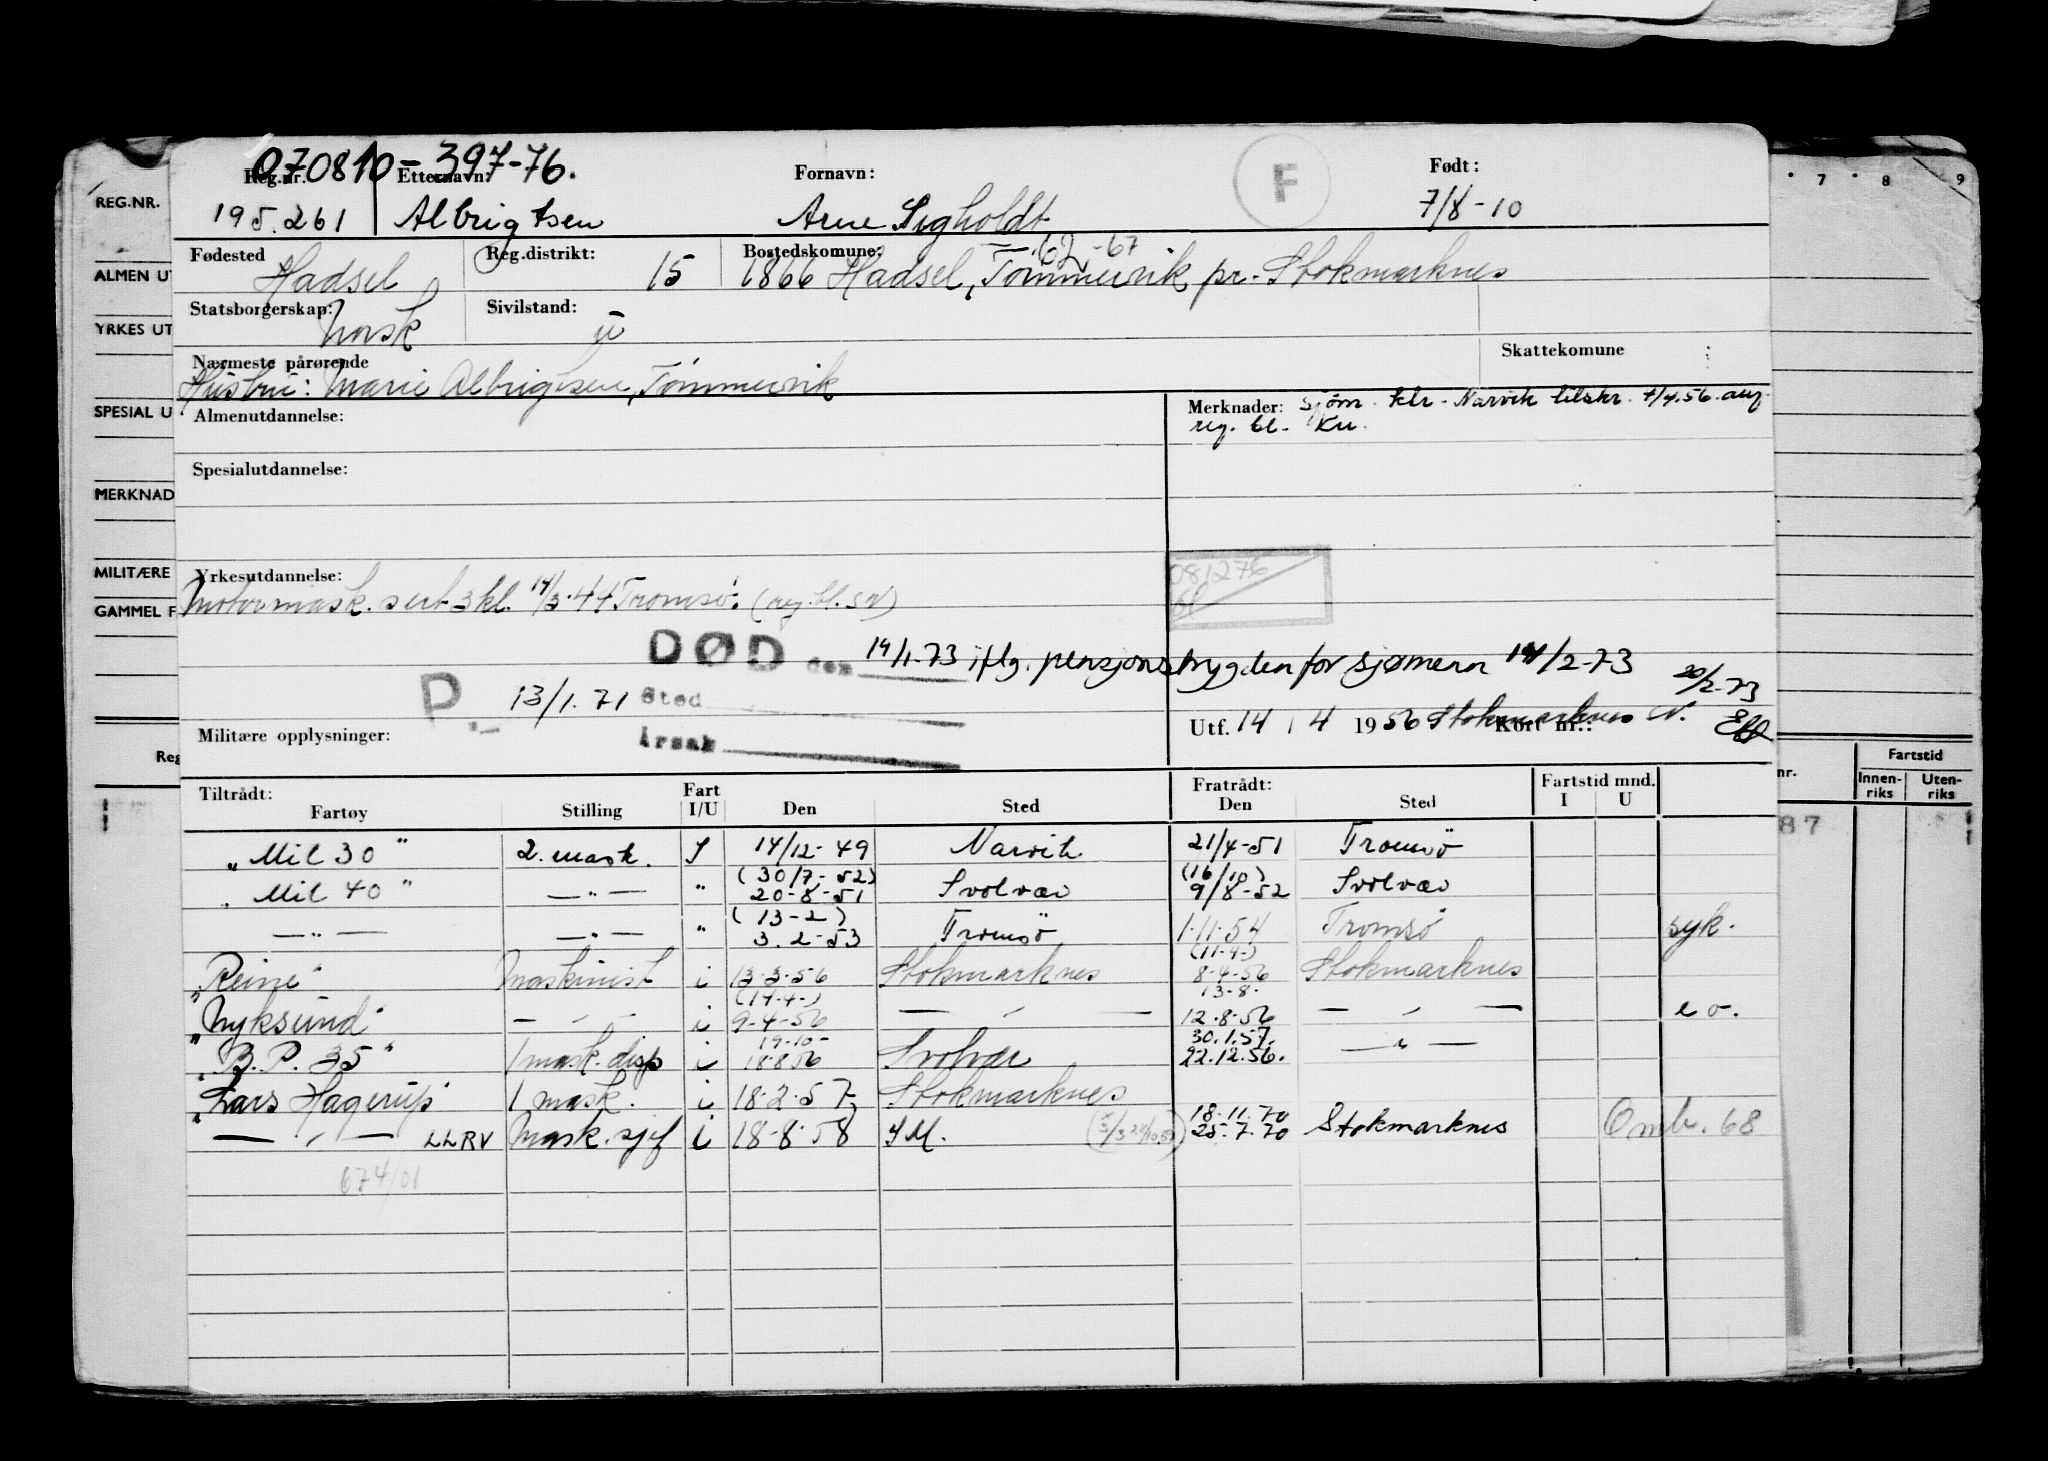 070810-397-76.
Reg.nr. Etternavn: Fornavn: F Født:
195.261 Albrigtsen Arne Sigholdt 7/8-10
REG.NR. 7 8 9
Fødested Reg.distrikt: Bostedskomune: -67
ALMEN UT Hadsel 15 1866 Hadsel, Tömmervik pr. Stokmarknes
Statsborgerskap: Sivilstand:
YRKES UT Norsk
Nærmeste pårørende Skattekomune :
Hustru: Marie Albrigtsen, Tömmervik
SPESIAL U Almenutdannelse: Merknader: Sjøm. klr. Narvik tilskr. 7/4.56. ang.
reg. bl. Ku.
Spesialutdannelse:
MERKNAD
MILITÆRE Yrkesutdannelse: 081276
GAMMEL F Motormask. sert. 3 kl. 14/3.44 Tromsö. (reg.bl. SN)
DØD den 14/1-73 iflg. pensjonstrygden for sjømenn 14/2-73
20/2-73
P. 13/1.71 Sted
Militære opplysninger: Årsak Utf. 14 / 4 1956 Stokmarknes N. Kort nr.:
Reg nr. Fartstid
Innen-riks Uten-riks
Tiltrådt: Fart Fratrådt: Fartstid mnd.
Fartøy Stilling I/U Den Sted Den Sted I U
87
"Mil 30" 2. mask. I 14/12-49 Narvik 21/4-51 Tromsö
(30/7-52) (16/10)
"Mil 40" — " — " 20-8-51 Svolvær 9/8-52 Svolvær
(13-2)
— " — — " — " 3.2-53 Tromsö 1.11.54 Tromsö syk.
(11-4-)
"Reine" Maskinist i 13.3.56 Stokmarknes 8-4-56 Stokmarknes
(14-4-) 13-8-
"Nyksund" — " — i 9-4-56 — " — 12.8.56 — " — e o.
19.10- 30.1.57.
"B.P. 35" 1 mask. disp i 18.8.56 Svolvær 22.12.56. — " —
"Lars Hagerup" 1 mask. i 18.2.57 Stokmarknes
18.11.70
— " — LLRV Mask.sjef i 18-8-58 25.7.70 Stokmarknes Omb. 68
674/01